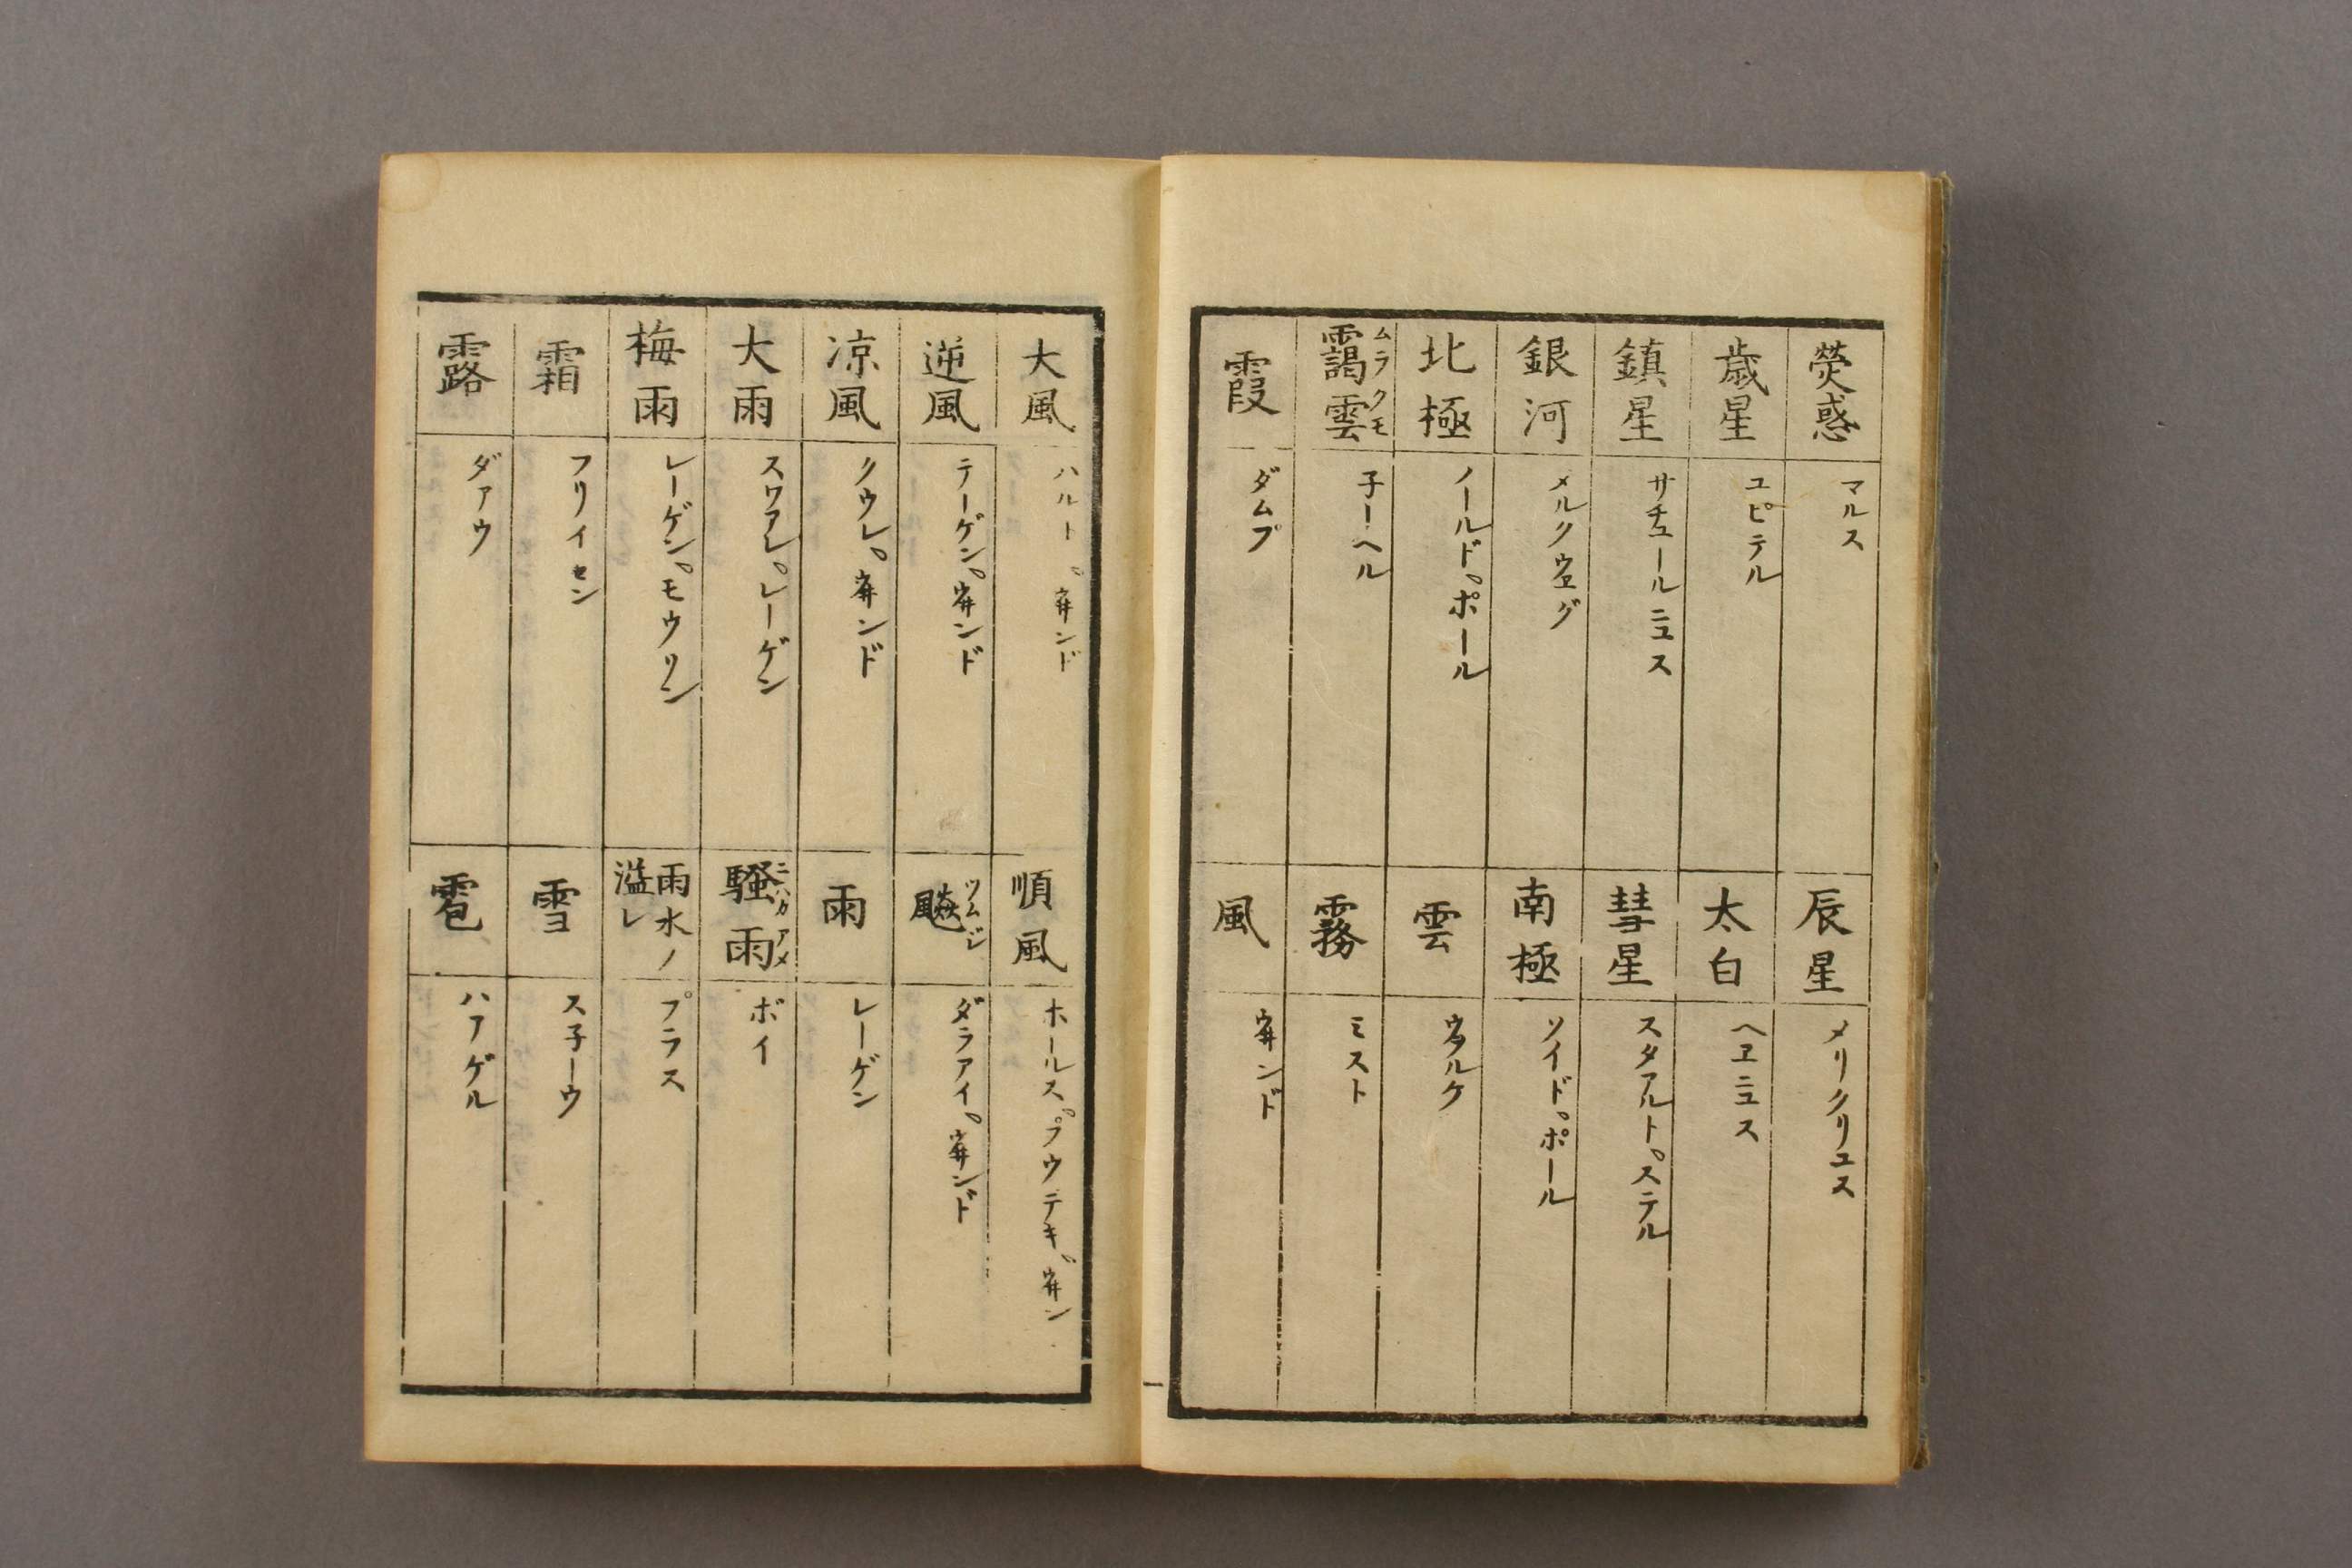 熒惑 マルス 辰星 メリクリユス
歳星 ユピテル 太白 ヘヱニユス
鎮星 サチユールニユス 彗星 スタアルト。ステル
銀河 メルクウエグ 南極 ソイド。ポール
北極 ノールド。ポール 雲 ウヲルケ
靄雲 ムラクモ 子ーヘル 霧 ミスト
霞 ダムプ 風 ウヰンド
大風 ハルト。ウヰンド 順風 ホールス。プウテキ。ウヰン
逆風 テーゲン。ウヰンド 飈 ツムジ ダラアイ。ウヰンド
凉風 クウレ。ウヰンド 雨 レーゲン
大雨 スワアレ。レーゲン 騒雨 ニハカアメ ボイ
梅雨 レーゲン。モウリン 雨水ノ溢レ プラス
霜 フリイセン 雪 ス子ーウ
露 ダアウ 雹 ハアゲル